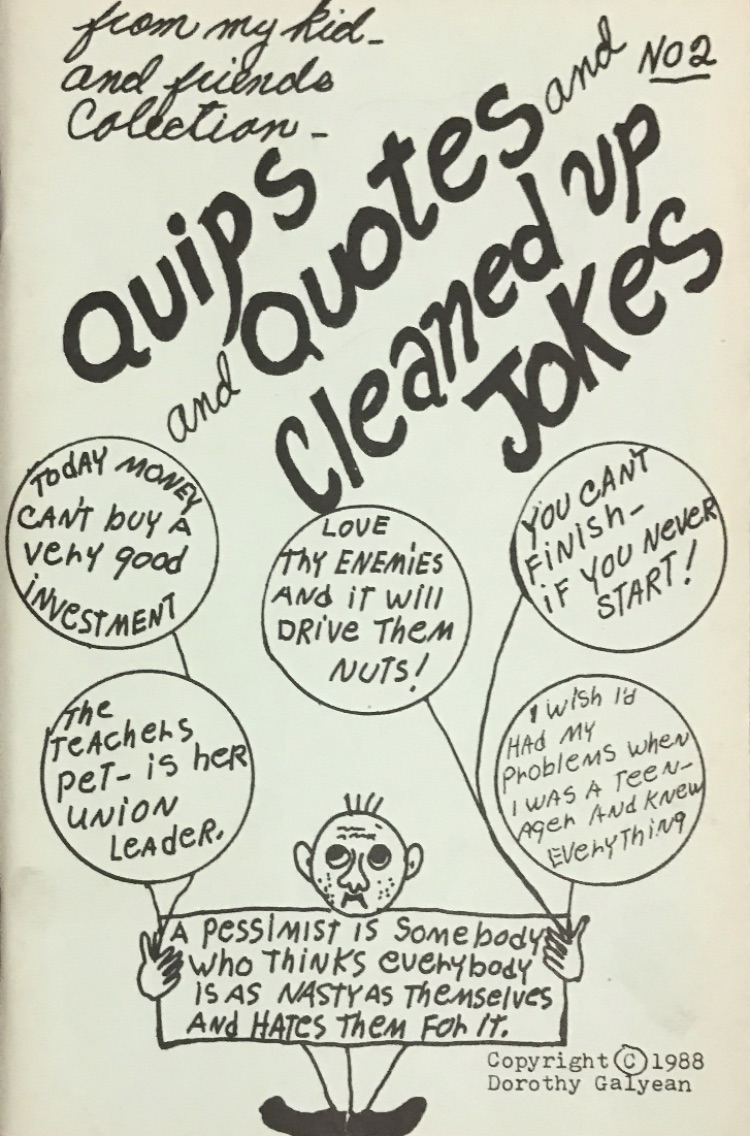 from my kid-
and friends
Colection-
No 2
Quips
and Quotes and
Cleaned up
Jokes
TODAY MONEY
CAN'T buy A
very good
INVESTMENT
LOVE
Thy ENEMIES
AND iT Will
DRIVE Them
NUTS!
YOU CAN'T
FiNiSh-
iF YOU NEVER
START!
The
TEAchers
PET- is her
UNION
LEAdeR.
I wish I'd
HAd MY
Problems when
I WAS A Teen-
Ager And Knew
Everything
A Pessimist is Somebody
who Thinks everybody
is AS NASTY AS Themselves
AND HATES Them For iT.
Copyright © 1988
Dorothy Galyean